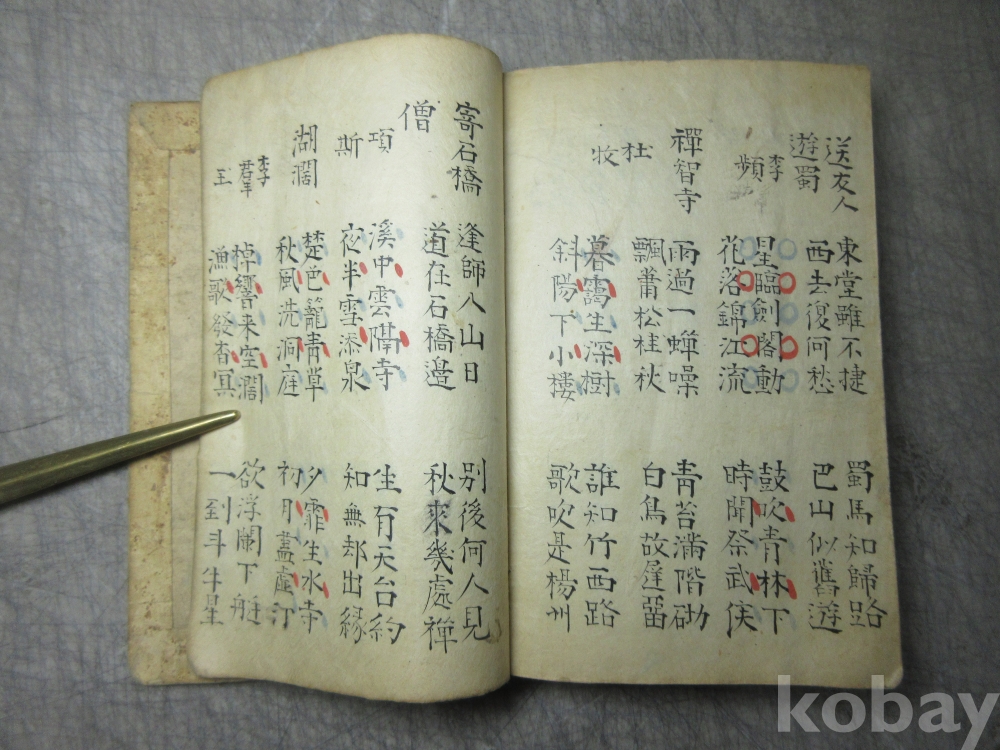 送友人
遊蜀
李
頻
東堂雖不捷
西去復何愁
蜀馬知歸路
巴山似舊遊
星臨劍閣動
花落錦江流
鼓吹青林下
時聞祭武侯
禪智寺
杜
牧
雨過一蟬噪
飄蕭松桂秋
青苔滿階砌
白鳥故遲留
暮靄生深樹
斜陽下小樓
誰知竹西路
歌吹是楊州
寄石橋
僧
項
斯
逢師入山日
道在石橋邊
別後何人見
秋來幾處禪
溪中雲隔寺
夜半雪添泉
生有天台約
知無却出緣
湖濶
李羣
玉
楚色籠青草
秋風洗洞庭
夕霏生水寺
初月盖虛汀
棹響来空濶
漁歌發杳冥
欲浮闌下艇
一到斗牛星
kobay